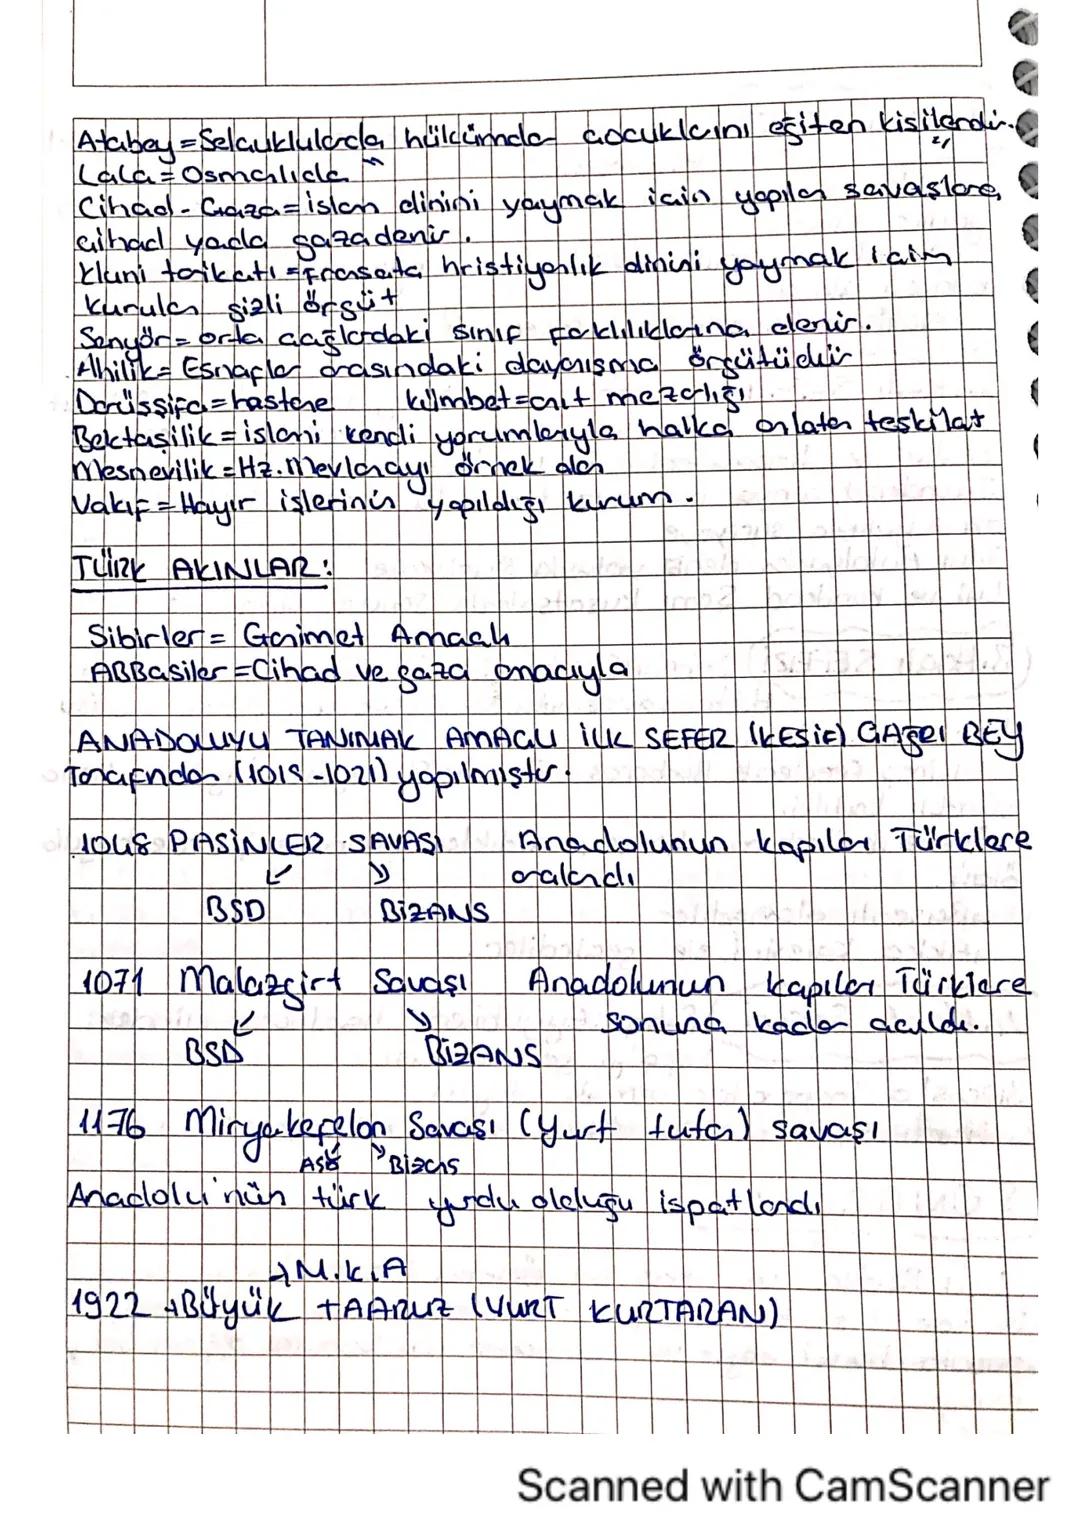 Atabey = Selçuklularda hükümdar çocuklarını eğiten kişilerdir.
Lala = Osmanlıda " "
Cihad - Gaza = islam dinini yaymak için yapılan savaşlara,
cihad yada gaza denir.
Kluni tarikatı = Fransata hristiyanlık dinini yaymak için
kurulan gizli örgüt
Senyör = orta çağlardaki sınıf farklılıklarına denir.
Ahilik = Esnaflar arasındaki dayanışma örgütüdür
Darüşşifa = hastane kümbet = anıt mezarlığı
Bektaşilik = islamı kendi yorumlarıyla halka anlatan teşkilat
Mesnevilik = Hz. Mevlanayı örnek alan
Vakıf = Hayır işlerinin yapıldığı kurum.
TÜRK AKINLAR:
Sibirler = Ganimet Amaçlı
ABBasiler = Cihad ve gaza amacıyla
ANADOLUYU TANIMAK AMAÇLI İLK SEFER (KEŞİF) ÇAĞRI BEY
Tarafından (1018-1021) yapılmıştır.
1048 PASİNLER SAVAŞI Anadolunun kapıları Türklere
aralandı
BSD BİZANS
1071 Malazgirt Savaşı Anadolunun kapıları Türklere
sonuna kadar açıldı.
BSD BİZANS
1176 Miryakefelon Savaşı (Yurt tutan) savaşı
Bizans
Anadolu'nün türk yurdu olduğu ispatlandı
→ M.K.A
1922 → Büyük TAARUZ (YURT KURTARAN)
Scanned with CamScanner